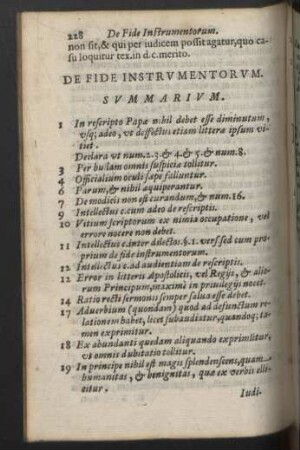 228 De Fide Instrumentorum.
non sit, & qui per iudicem possit agatur, quo ca-
su loquitur tex. in d. c. merito.
DE FIDE INSTRVMENTORVM.
SVMMARIVM.
1 In rescripto Papæ nihil debet esse diminutum,
vsq; adeo, vt deffectus etiam litteræ ipsum vi-
tiet.
Declara vt num. 2. 3. & 4. & 5. & num. 8.
3 Per bullam omnis suspicio tollitur.
4 Officialium oculi sæpe falluntur.
6 Parum, & nihil æquiperantur.
7 De modicis non est curandum, & num. 16.
9 Intellectus c. cum adeo de rescriptis.
10 Vitium scriptorum ex nimia occupatione, vel
errore nocere non debet.
11 Intellectus c. inter dilectos. §. 1. vers. sed cum pro-
prium de fide instrumentorum.
12 Intellectus c. ad audientiam de rescriptis.
12 Error in litteris Apostolicis, vel Regijs, & alio-
rum Principum, maximè in priuilegijs nocet.
14 Ratio recti sermonis semper salua esse debet.
17 Aduerbium (quondam) quod ad defunctum re-
lationem habet, licet subaudiatur, quandoq; ta-
men exprimitur.
18 Ex abundanti quædam aliquando exprimuntur,
vt omnis dubitatio tollatur.
19 In principe nihil est magis splendescens, quam
humanitas, & benignitas, quæ ex verbis elli-
citur.
Iudi-